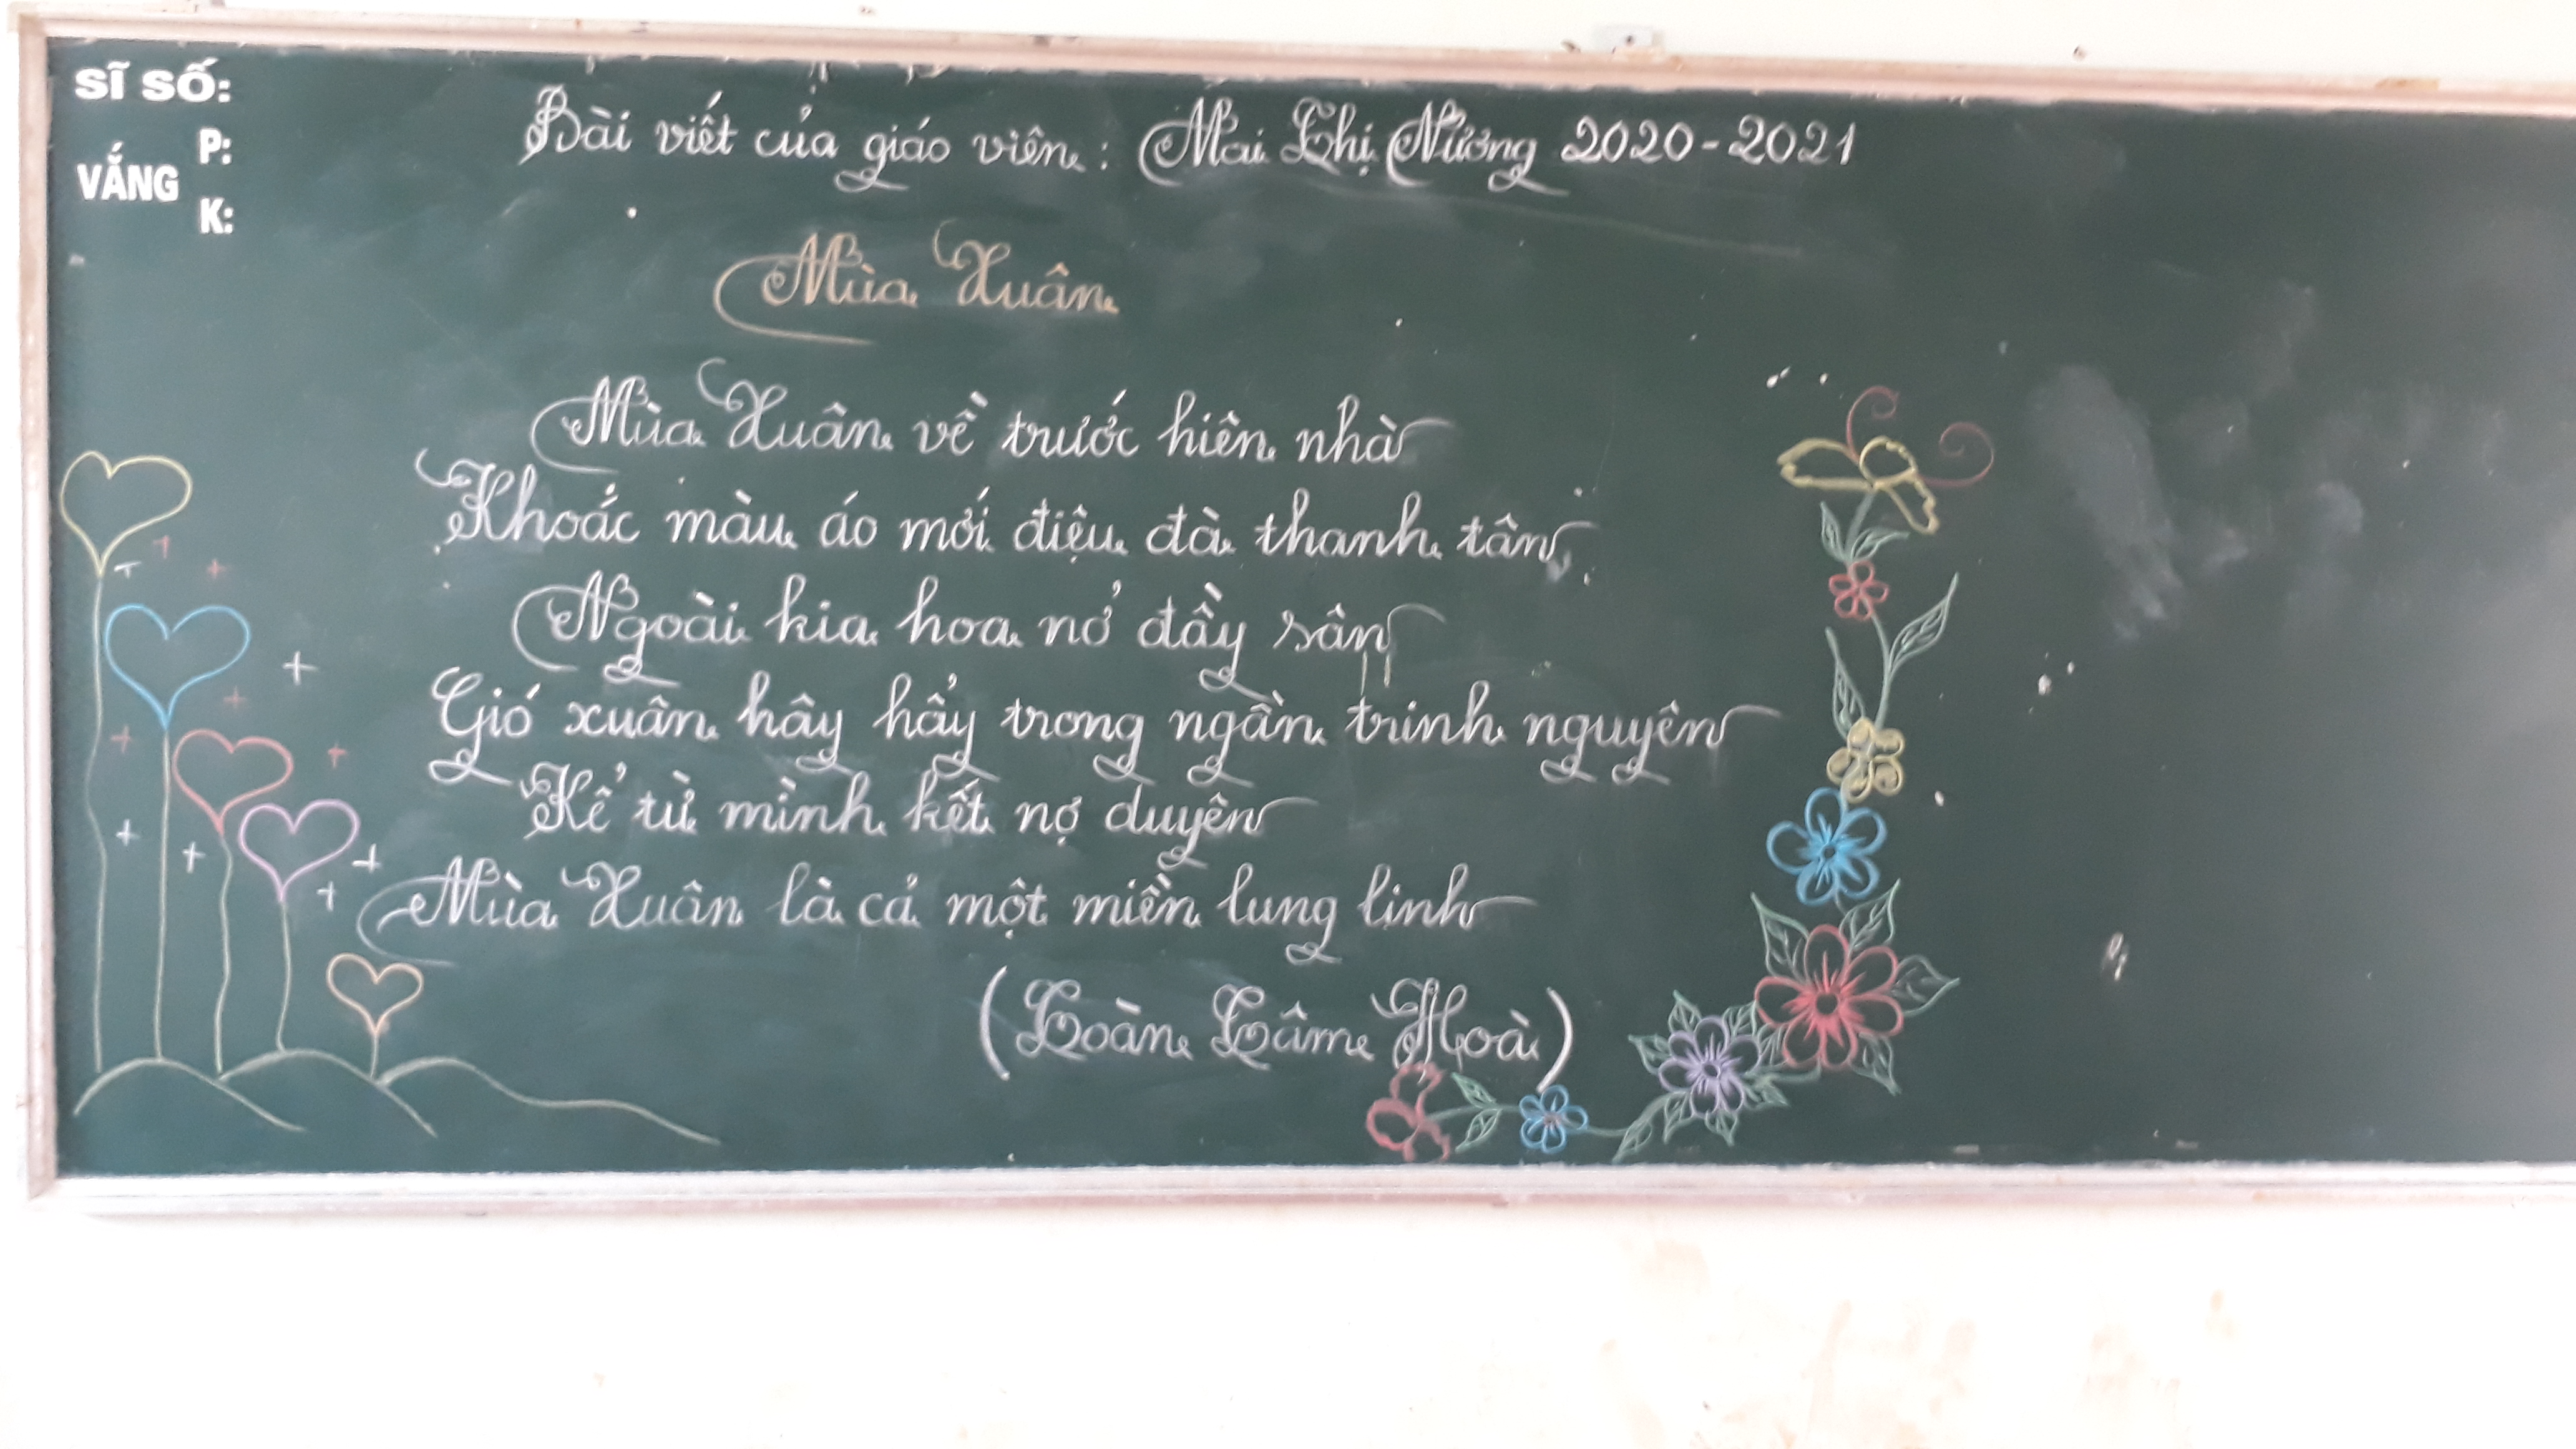 SĨ SỐ:
VẮNG P:
K:
Bài viết của giáo viên: Mai Thị Nương 2020-2021
Mùa Xuân
Mùa Xuân về trước hiên nhà
Khoác màu áo mới điệu đà thanh tân
Ngoài kia hoa nở đầy sân
Gió xuân hây hẩy trong ngần trinh nguyên
Kể từ mình kết nợ duyên
Mùa Xuân là cả một miền lung linh
(Toàn Tâm Hoà)